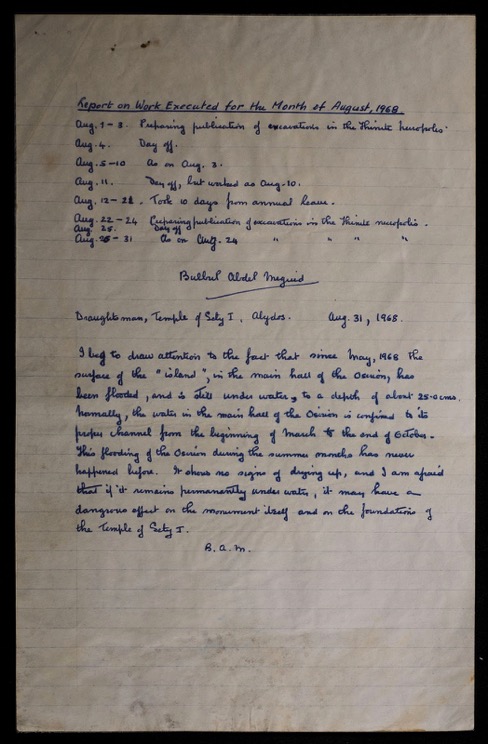 Report on Work Executed for the Month of August, 1968
Aug. 1-3. Preparing publication of excavations in the Thinite necropolis.
Aug. 4. Day off.
Aug. 5-10 As on Aug. 3.
Aug. 11. Day off, but worked as Aug. 10.
Aug. 12-21. Took 10 days from annual leave.
Aug. 22-24 Preparing publication of excavations in the Thinite necropolis.
Aug. 25. Day off
Aug. 26-31 As on Aug. 24 " " " "
Bulbul Abdel Meguid
Draughtsman, Temple of Sety I, Abydos. Aug. 31, 1968.
I beg to draw attention to the fact that since May, 1968 the
surface of the "island", in the main hall of the Osirion, has
been flooded, and is still under water, to a depth of about 25.0 cms.
Normally, the water in the main hall of the Osirion is confined to its
proper channel from the beginning of March to the end of October.
This flooding of the Osirion during the summer months has never
happened before. It shows no signs of drying up, and I am afraid
that if it remains permanently under water, it may have a
dangerous effect on the monument itself and on the foundations of
the Temple of Sety I.
B. A. M.